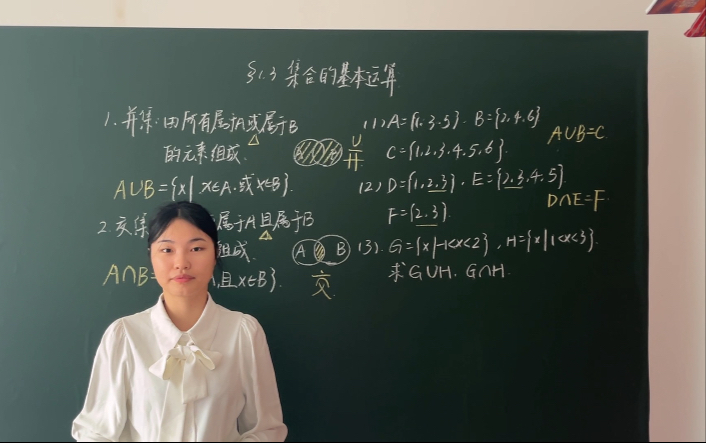 §1.3 集合的基本运算
1. 并集: 由所有属于A或属于B
的元素组成.
A∪B={x|x∈A,或x∈B}.
2. 交集 属于A且属于B
组成.
A B
A∩B= ,且x∈B}.
∪
并
交
(1) A={1,3,5}. B={2,4,6}
C={1,2,3,4,5,6}.
A∪B=C
(2) D={1,2,3}, E={2,3,4,5}.
F={2,3}.
D∩E=F
(3). G={x|-1<x<2}, H={x|1<x<3}.
求G∪H, G∩H.